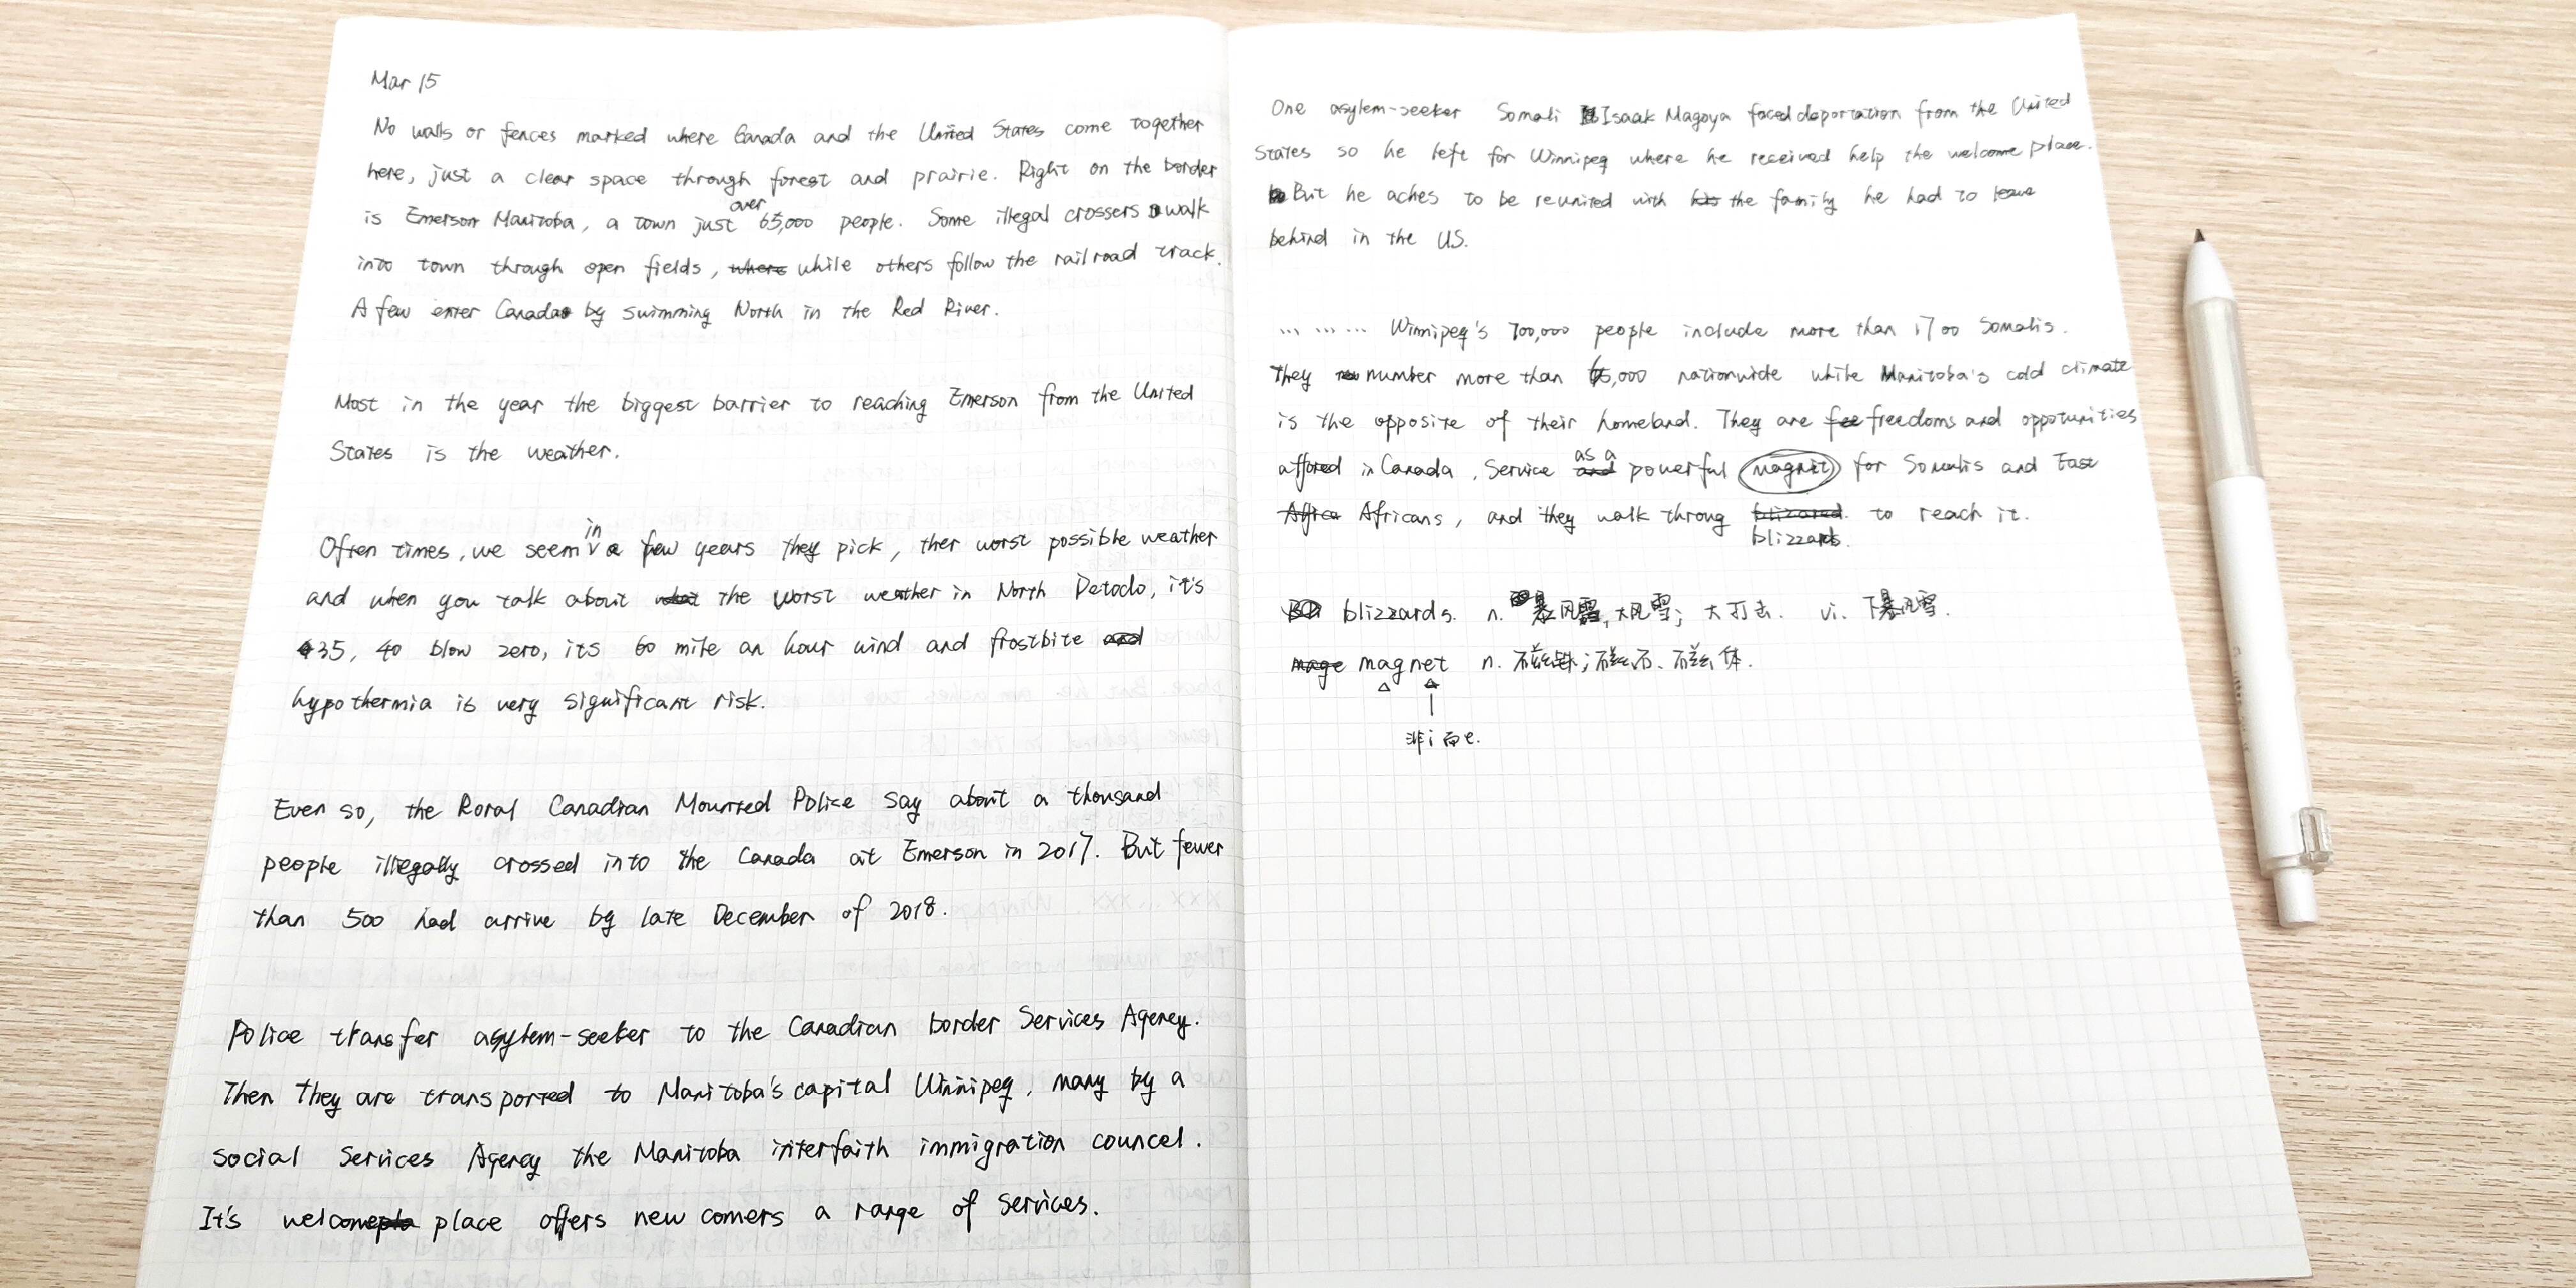 Mar 15
No walls or fences marked where Canada and the United States come together
here, just a clear space through forest and prairie. Right on the border
is Emerson Manitoba, a town just over 65,000 people. Some illegal crossers walk
into town through open fields, where while others follow the railroad track.
A few enter Canada by swimming North in the Red River.
Most in the year the biggest barrier to reaching Emerson from the United
States is the weather.
Often times, we seem in a few years they pick, ther worst possible weather
and when you talk about what the worst weather in North Detoclo, it's
35, 40 blow zero, its 60 mile an hour wind and frostbite and
hypothermia is very significant risk.
Even so, the Roral Canadian Mounted Police say about a thousand
people illegally crossed into the Canada at Emerson in 2017. But fewer
than 500 had arrive by late December of 2018.
Police transfer asylem-seeker to the Canadian border Services Agency.
Then They are transported to Manitoba's capital Winnipeg, many by a
social Services Agency the Manitoba interfaith immigration councel.
It's welcomepla place offers new comers a range of services.
One asylem-seeker Somali Isaak Magoya faced deportation from the United
States so he left for Winnipeg where he received help the welcome place.
But he aches to be reunited with his the family he had to leave
behind in the US.
... ... ... Winnipeg's 700,000 people include more than 1700 Somalis.
They number more than 65,000 nationwide while Manitoba's cold climate
is the opposite of their homeland. They are fee freedoms and oppotunities
affored in Canada, Service and as a powerful magnit for Somalis and East
Africa Africans, and they walk throug blizzared blizzards. to reach it.
blizzards. n. 暴风雪, 大风雪; 大打击. vi. 下暴风雪.
mage magnet n. 磁铁; 磁石、磁体.
非i而e.